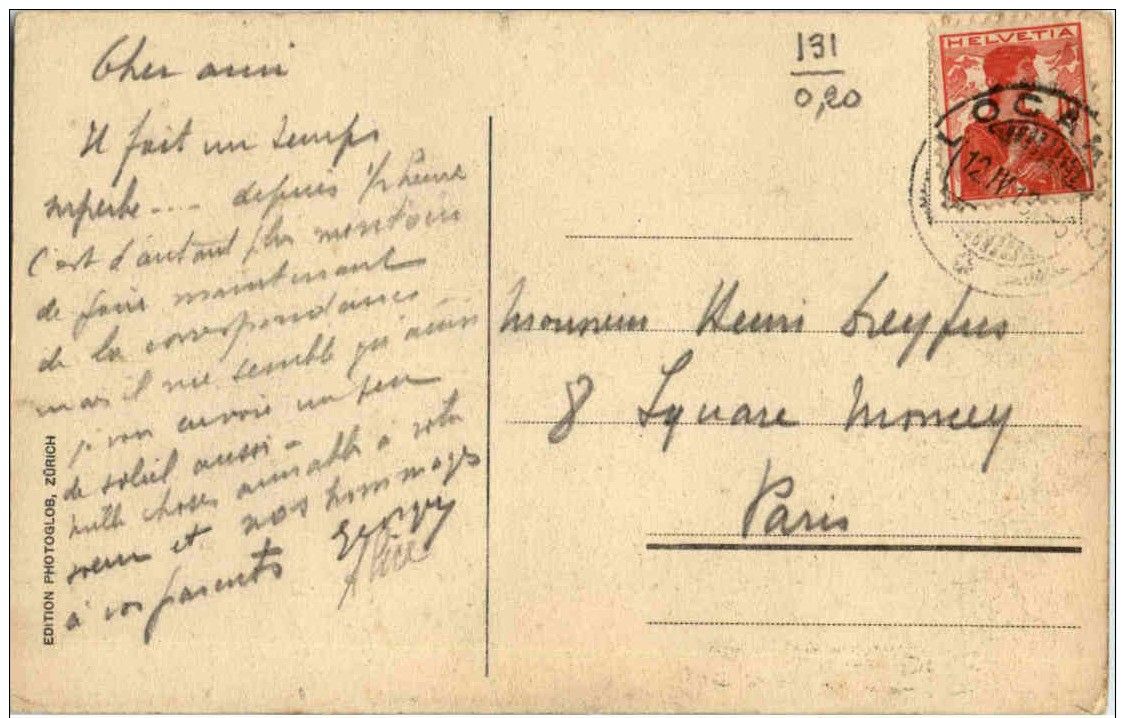 Cher ami
Il fait un temps
superbe .... depuis 1/2 heure
c'est d'autant plus méritoire
de faire maintenant
de la correspondance
mais il me semble qu'ainsi
je vous envoie un peu
de soleil aussi –
mille choses aimables à votre
soeur et nos hommages
à vos parents Georges
Alice
EDITION PHOTOGLOB, ZÜRICH
131
0,20
HELVETIA
LOCA
12.IV.
Monsieur Henri Dreyfus
8 Square Moncey
Paris